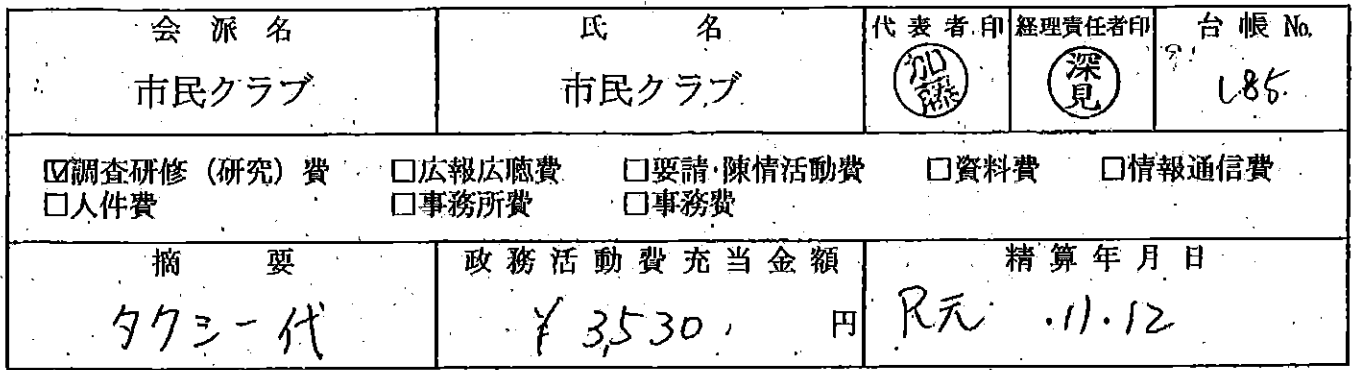 会派名 氏名 代表者印 経理責任者印 台帳No.
市民クラブ 市民クラブ 加藤 深見 185.
☑調査研修（研究）費 □広報広聴費 □要請・陳情活動費 □資料費 □情報通信費
□人件費 □事務所費 □事務費
摘要 政務活動費充当金額 精算年月日
タクシー代 ¥3,530. 円 R元.11.12